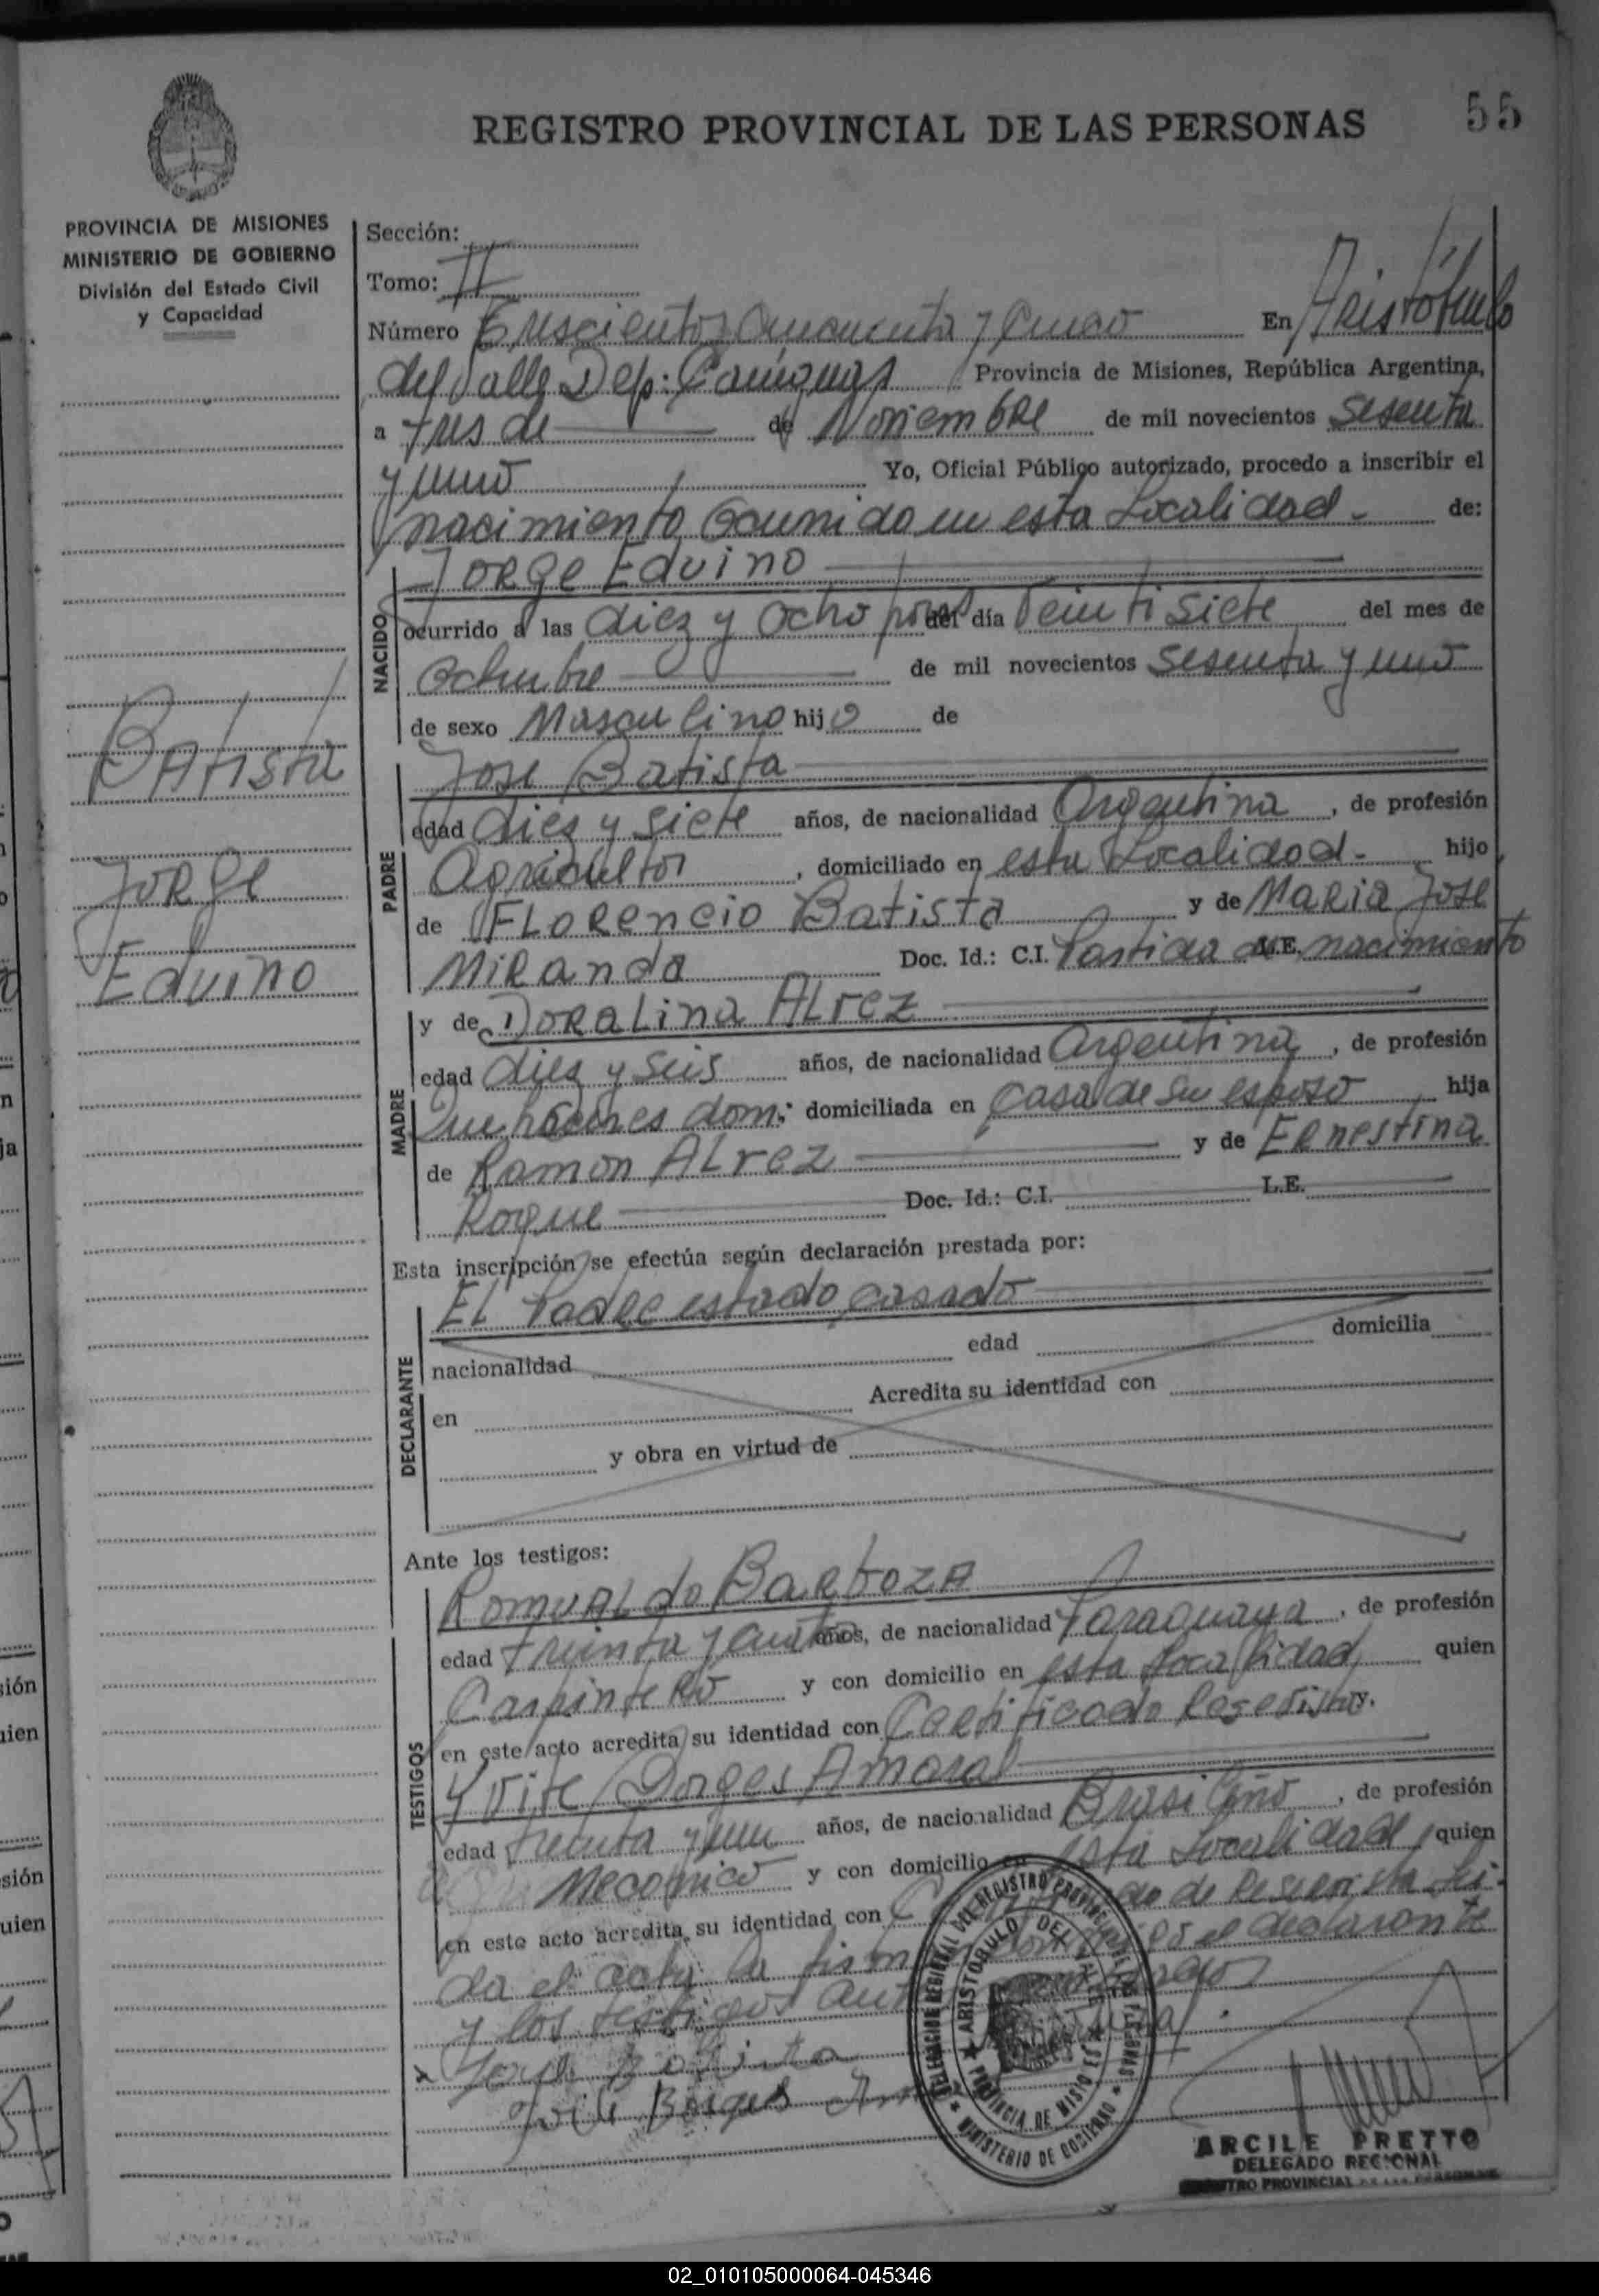 55
REGISTRO PROVINCIAL DE LAS PERSONAS
PROVINCIA DE MISIONES
MINISTERIO DE GOBIERNO
División del Estado Civil
y Capacidad
Batista
Jorge
Eduino
Sección:
Tomo: II
Número Trescientos Cincuenta y Cinco En Aristóbulo
del Valle Dep: Cainguas Provincia de Misiones, República Argentina,
a tres de de Noviembre de mil novecientos sesenta
y uno Yo, Oficial Público autorizado, procedo a inscribir el
nacimiento Ocurrido en esta Localidad - de:
NACIDO
Jorge Eduino
ocurrido a las diez y ocho horas del día Veinti siete del mes de
Octubre de mil novecientos sesenta y uno
de sexo Masculino hijo de
PADRE
Jose Batista
edad diez y siete años, de nacionalidad Argentina, de profesión
Agricultor, domiciliado en esta Localidad - hijo
de Florencio Batista y de Maria Jose
Miranda Doc. Id.: C.I. Partida de L.E. nacimiento
MADRE
y de Doralina Alvez
edad diez y seis años, de nacionalidad Argentina, de profesión
Que haceres dom; domiciliada en casa de su esposo hija
de Ramon Alvez y de Ernestina
Roque Doc. Id.: C.I. L.E.
Esta inscripción se efectúa según declaración prestada por:
DECLARANTE
El Padre estado casado
nacionalidad edad domicilia
en Acredita su identidad con
y obra en virtud de
Ante los testigos:
TESTIGOS
Romualdo Barboza
edad treinta y cuatro años, de nacionalidad Paraguaya, de profesión
Carpintero y con domicilio en esta Localidad quien
en este acto acredita su identidad con Certificado Reservista y.
y Vite Borges Amaral
edad treinta y un años, de nacionalidad Brasileño, de profesión
Mecanico y con domicilio en esta Localidad quien
en este acto acredita su identidad con de Reservista Lei-
da el acta la firman el declarante
y los testigos
Jose Batista
Vite Borges
DELEGACION REGIONAL DEL REGISTRO PROVINCIAL DE LAS PERSONAS
ARISTOBULO DEL VALLE
PROVINCIA DE MISIONES
MINISTERIO DE GOBIERNO
ARCILE PRETTO
DELEGADO REGIONAL
REGISTRO PROVINCIAL DE LAS PERSONAS
02_010105000064-045346